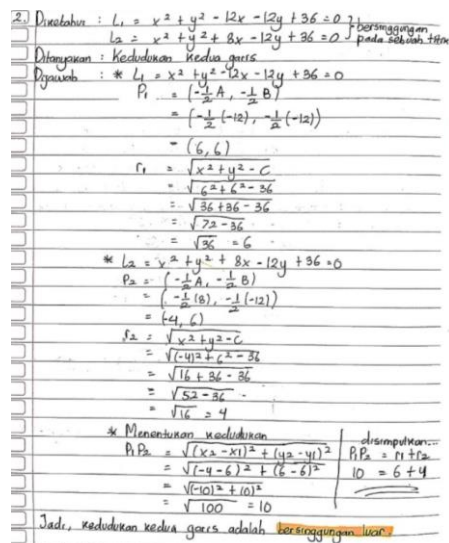 2. Diketahui : L₁ = x² + y² - 12x - 12y + 36 = 0 } bersinggungan
L₂ = x² + y² + 8x - 12y + 36 = 0 } pada sebuah titik
Ditanyakan : Kedudukan kedua garis
Dijawab : * L₁ = x² + y² - 12x - 12y + 36 = 0
P₁ = (-½ A, -½ B)
= (-½ (-12), -½ (-12))
= (6,6)
r₁ = √x² + y² - C
= √6² + 6² - 36
= √36 + 36 - 36
= √72 - 36
= √36 = 6
* L₂ = x² + y² + 8x - 12y + 36 = 0
P₂ = (-½ A, -½ B)
= (-½ (8), -½ (-12))
= (-4, 6)
r₂ = √x² + y² - C
= √(-4)² + 6² - 36
= √16 + 36 - 36
= √52 - 36
= √16 = 4
* Menentukan kedudukan
P₁P₂ = √(x₂ - x₁)² + (y₂ - y₁)²
= √(-4 - 6)² + (6 - 6)²
= √(-10)² + (0)²
= √100 = 10
disimpulkan...
P₁P₂ = r₁ + r₂
10 = 6 + 4
Jadi, kedudukan kedua garis adalah bersinggungan luar.